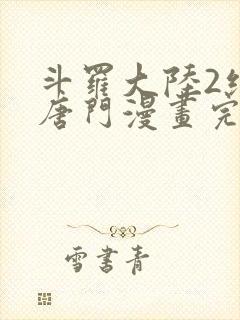 斗羅大陸2
唐門漫畫完
雪書青